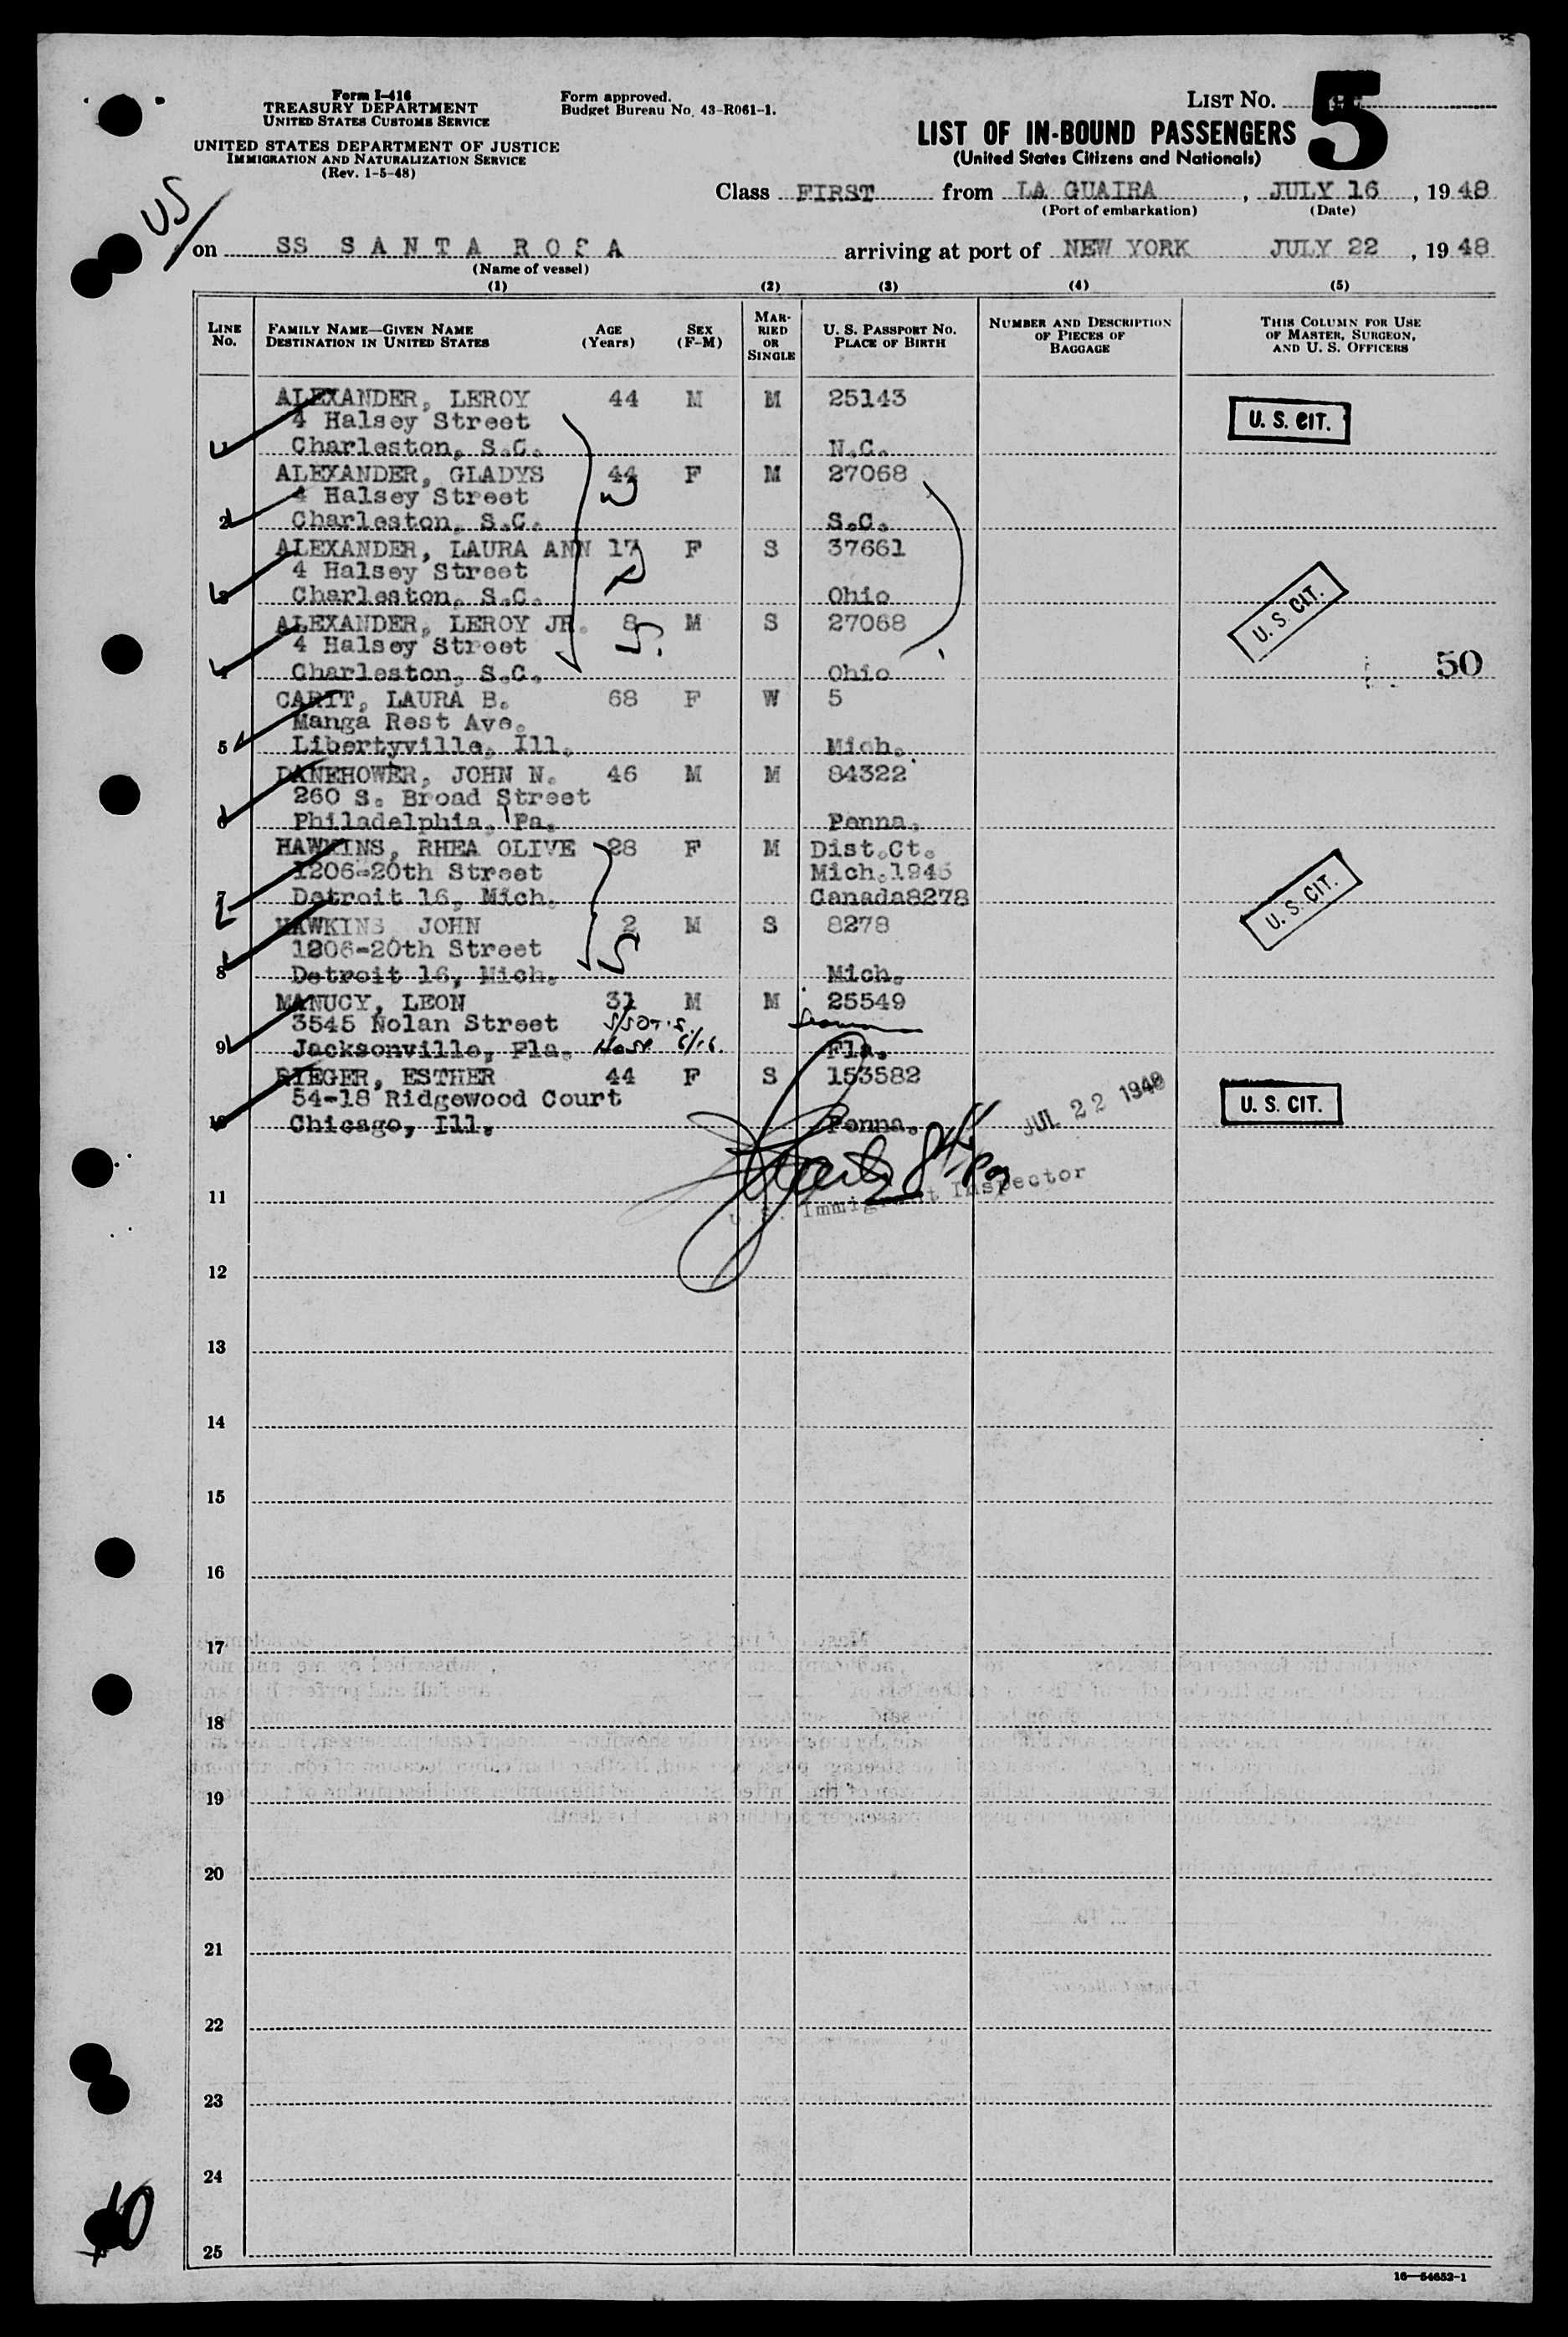 Form I-416
TREASURY DEPARTMENT
UNITED STATES CUSTOMS SERVICE
UNITED STATES DEPARTMENT OF JUSTICE
IMMIGRATION AND NATURALIZATION SERVICE
(Rev. 1-5-48)
Form approved.
Budget Bureau No. 43-R061-1.
LIST No. 5
LIST OF IN-BOUND PASSENGERS
(United States Citizens and Nationals)
US
Class FIRST from LA GUAIRA, JULY 16, 1948
(Port of embarkation) (Date)
on SS SANTA ROSA arriving at port of NEW YORK JULY 22, 1948
(Name of vessel)
(1) (2) (3) (4) (5)
LINE No. FAMILY NAME—GIVEN NAME DESTINATION IN UNITED STATES AGE (Years) SEX (F-M) MARRIED OR SINGLE U. S. PASSPORT No. PLACE OF BIRTH NUMBER AND DESCRIPTION OF PIECES OF BAGGAGE THIS COLUMN FOR USE OF MASTER, SURGEON, AND U. S. OFFICERS
ALEXANDER, LEROY 44 M M 25143
4 Halsey Street U. S. CIT.
1 Charleston, S.C. N.C.
ALEXANDER, GLADYS 44 F M 27068
4 Halsey Street
2 Charleston, S.C. S.C.
ALEXANDER, LAURA ANN 17 F S 37661
4 Halsey Street
3 Charleston, S.C. Ohio U. S. CIT.
ALEXANDER, LEROY JR. 8 M S 27068
4 Halsey Street
4 Charleston, S.C. Ohio 50
CARIT, LAURA B. 68 F W 5
Manga Rest Ave.
5 Libertyville, Ill. Mich.
DANEHOWER, JOHN N. 46 M M 84322
260 S. Broad Street
6 Philadelphia, Pa. Penna.
HAWKINS, RHEA OLIVE 28 F M Dist.Ct.
1206-20th Street Mich.1945
7 Detroit 16, Mich. Canada8278 U. S. CIT.
HAWKINS JOHN 2 M S 8278
1206-20th Street
8 Detroit 16, Mich. Mich.
MANUCY, LEON 31 M M 25549
3545 Nolan Street
9 Jacksonville, Fla. Fla.
RIEGER, ESTHER 44 F S 153582
54-18 Ridgewood Court JUL 22 1948 U. S. CIT.
10 Chicago, Ill. Penna.
U.S. Immigrant Inspector
11
12
13
14
15
16
17
18
19
20
21
22
23
24
25
10
16—54652-1